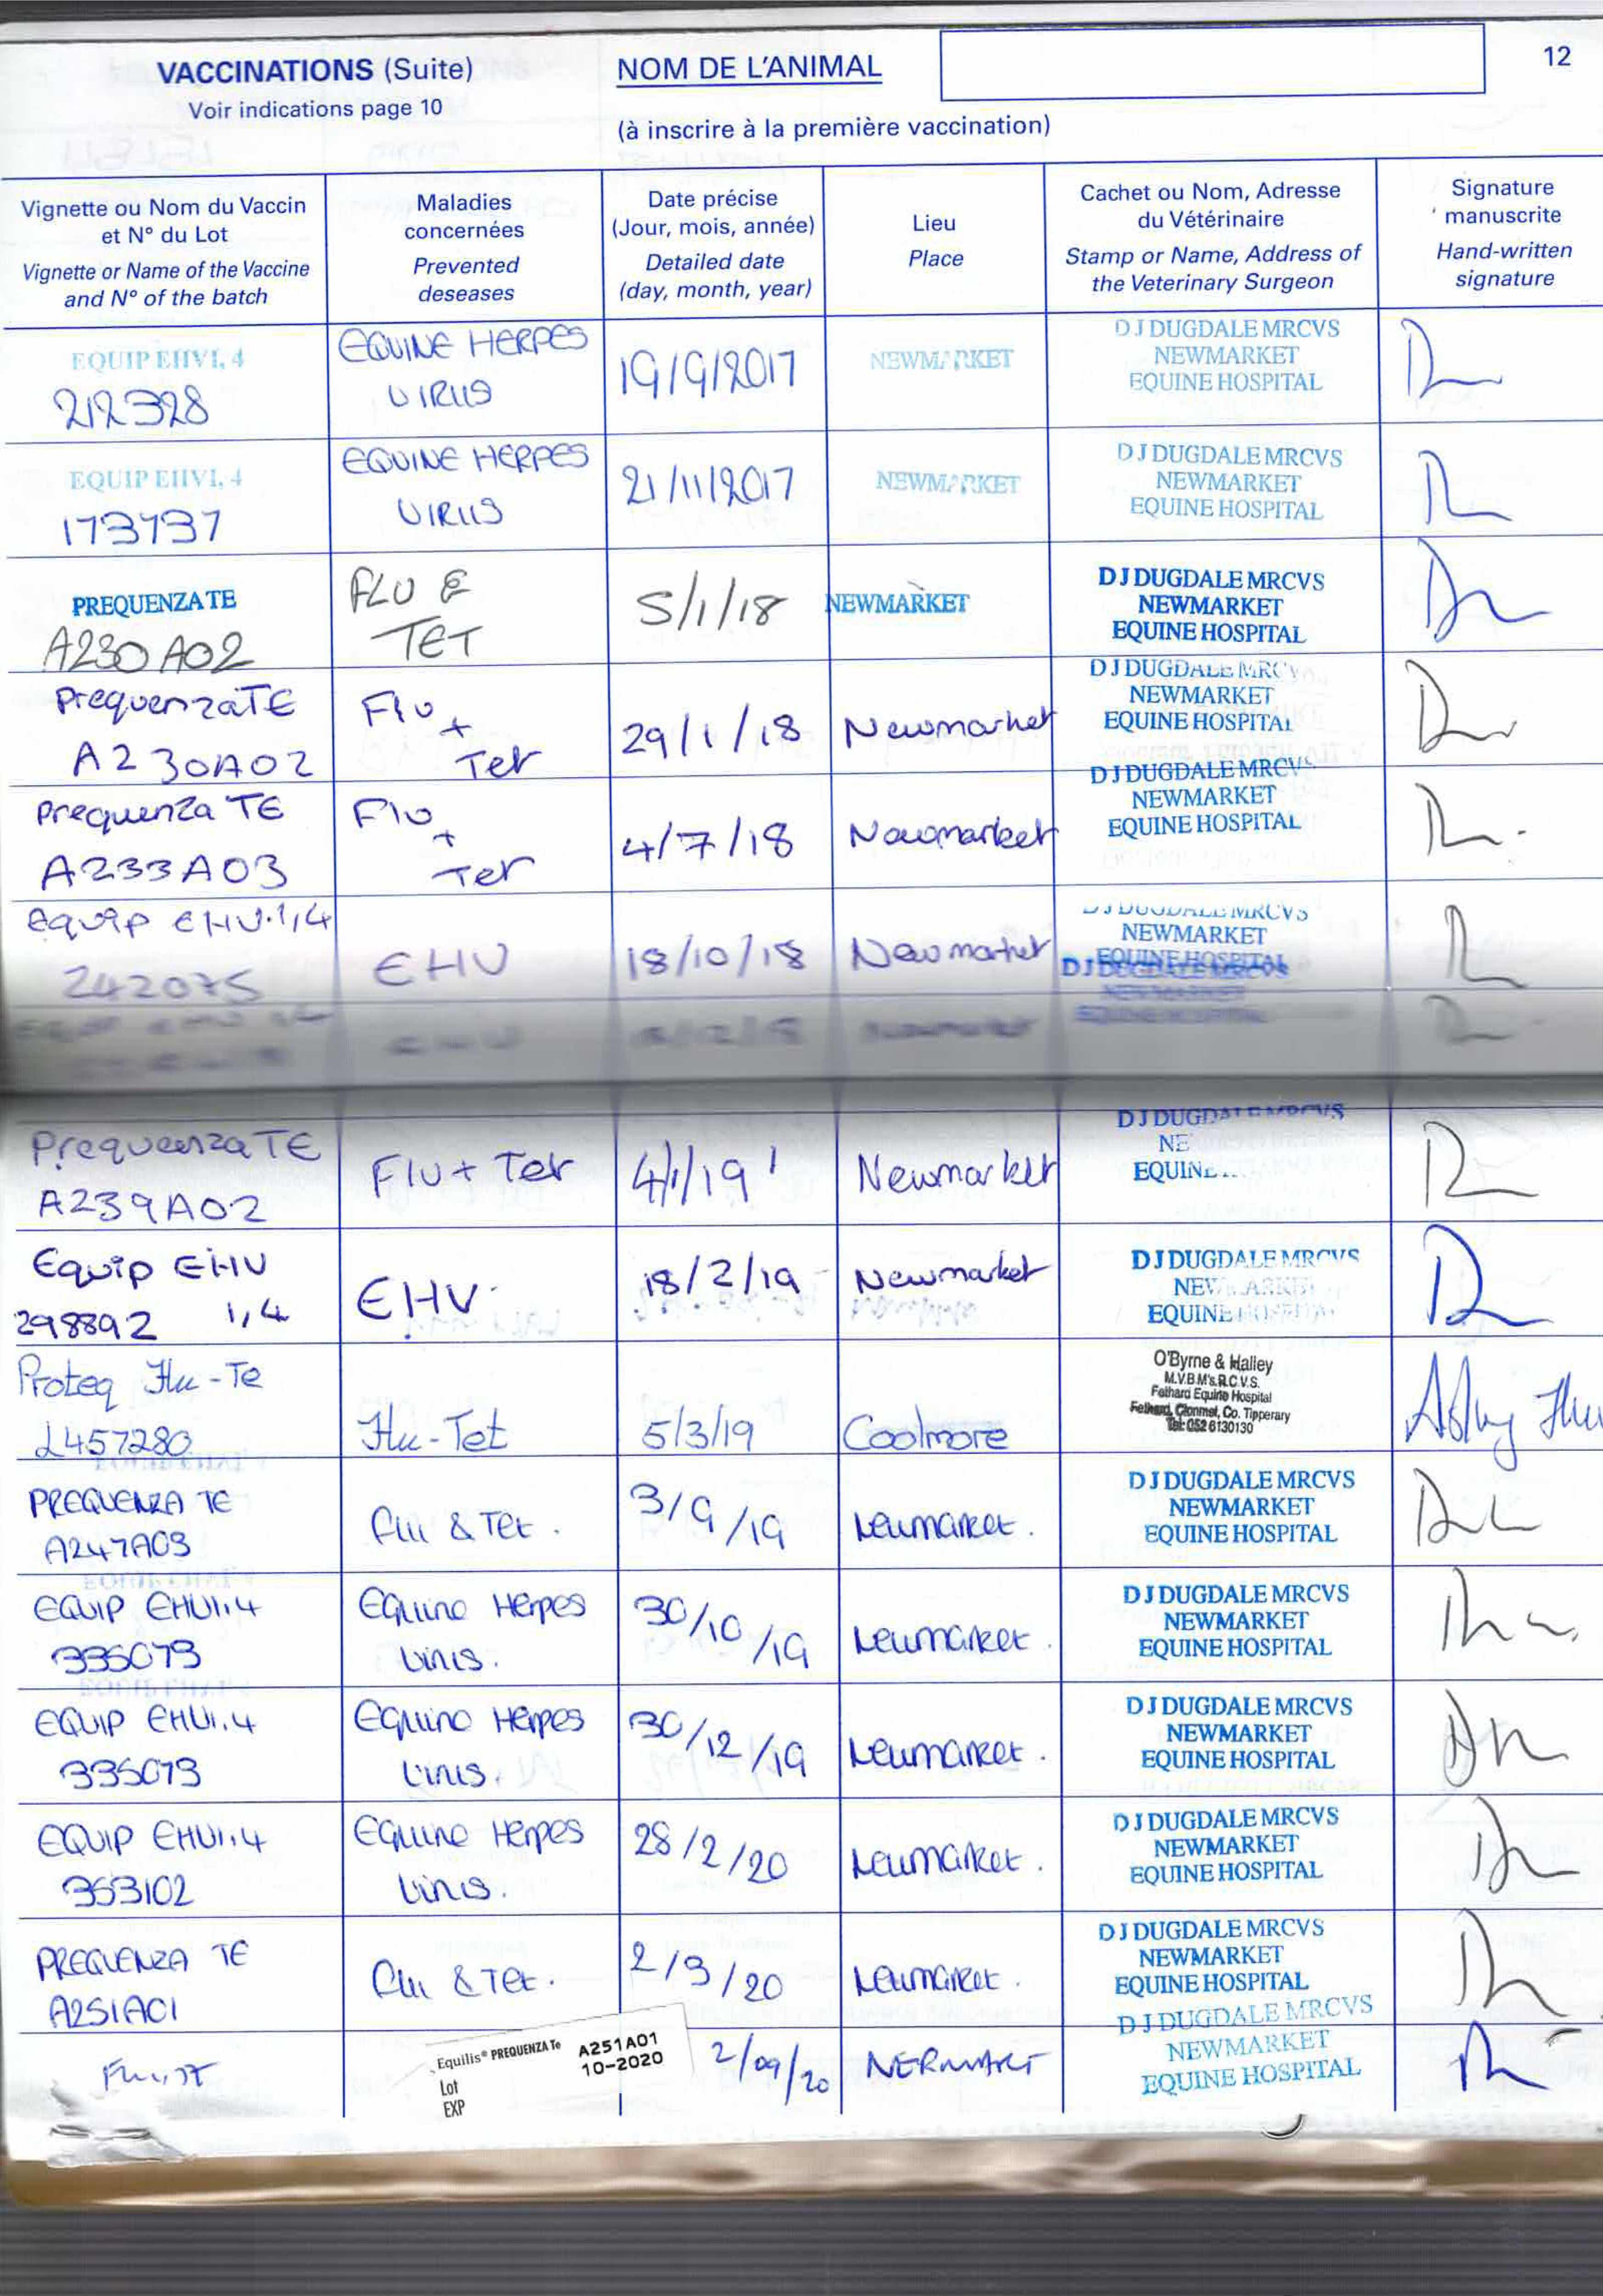 VACCINATIONS (Suite)
Voir indications page 10
NOM DE L'ANIMAL
(à inscrire à la première vaccination)
12
Vignette ou Nom du Vaccin
et N° du Lot
Vignette or Name of the Vaccine
and N° of the batch
Maladies
concernées
Prevented
deseases
Date précise
(Jour, mois, année)
Detailed date
(day, month, year)
Lieu
Place
Cachet ou Nom, Adresse
du Vétérinaire
Stamp or Name, Address of
the Veterinary Surgeon
Signature
manuscrite
Hand-written
signature
EQUIP EHV1,4
212328
EQUINE HERPES
VIRUS
19/9/2017
NEWMARKET
D J DUGDALE MRCVS
NEWMARKET
EQUINE HOSPITAL
EQUIP EHV1,4
173737
EQUINE HERPES
VIRUS
21/11/2017
NEWMARKET
D J DUGDALE MRCVS
NEWMARKET
EQUINE HOSPITAL
PREQUENZA TE
A230A02
FLU &
TET
5/1/18
NEWMARKET
D J DUGDALE MRCVS
NEWMARKET
EQUINE HOSPITAL
PrequenzaTE
A230A02
Flu +
Tet
29/1/18
Newmarket
D J DUGDALE MRCV
NEWMARKET
EQUINE HOSPITAL
Prequenza TE
A233A03
Flu +
Tet
4/7/18
Newmarket
D J DUGDALE MRCVS
NEWMARKET
EQUINE HOSPITAL
Equip EHV.1,4
242075
EHV
18/10/18
Newmarket
D J DUGDALE MRCVS
NEWMARKET
EQUINE HOSPITAL
Prequenza TE
A239A02
Flu + Tet
4/1/19
Newmarket
D J DUGDALE MRCVS
NE
EQUINE
Equip EHV
298892 1,4
EHV
18/2/19
Newmarket
D J DUGDALE MRCVS
NEWMARKET
EQUINE HOSPITAL
Proteq Flu-Te
L457280
Flu-Tet
5/3/19
Coolmore
O'Byrne & Halley
M.V.B.M's.R.C.V.S.
Fethard Equine Hospital
Fethard, Clonmel, Co. Tipperary
Tel: 052 6130130
PREQUENZA TE
A247A03
Flu & Tet.
3/9/19
Newmarket.
D J DUGDALE MRCVS
NEWMARKET
EQUINE HOSPITAL
EQUIP EHV1,4
335073
Equine Herpes
Virus.
30/10/19
Newmarket.
D J DUGDALE MRCVS
NEWMARKET
EQUINE HOSPITAL
EQUIP EHV1,4
335073
Equine Herpes
Virus.
30/12/19
Newmarket.
D J DUGDALE MRCVS
NEWMARKET
EQUINE HOSPITAL
EQUIP EHV1,4
353102
Equine Herpes
Virus.
28/2/20
Newmarket.
D J DUGDALE MRCVS
NEWMARKET
EQUINE HOSPITAL
PREQUENZA TE
A251A01
Flu & Tet.
2/3/20
Newmarket.
D J DUGDALE MRCVS
NEWMARKET
EQUINE HOSPITAL
Equilis® PREQUENZA Te A251A01
Lot 10-2020
EXP
2/09/20
D J DUGDALE MRCVS
NEWMARKET
EQUINE HOSPITAL